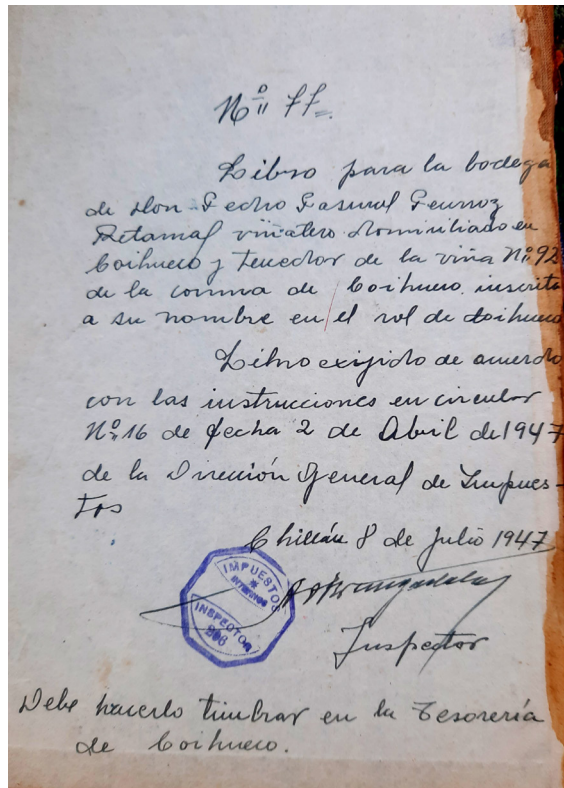 Nº 77=
Libro para la bodega
de don Pedro Pascual
Retamal viñatero domiciliado en
Coihueco y tenedor de la viña Nº 92
de la comuna de Coihueco inscrita
a su nombre en el rol de Coihueco
Libro exigido de acuerdo
con las instrucciones en circular
Nº 16 de fecha 2 de Abril de 1947
de la Dirección General de Impues-
tos
Chillán 8 de Julio 1947
IMPUESTOS
INTERNOS
INSPECTOR
Inspector
Debe hacerlo timbrar en la Tesorería
de Coihueco.